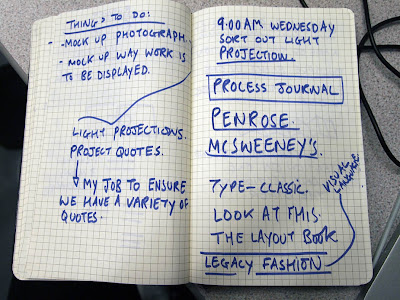 THINGS TO DO:
- -MOCK UP PHOTOGRAPH.
- MOCK UP WAY WORK IS
TO BE DISPLAYED.
LIGHT PROJECTIONS.
PROJECT QUOTES.
MY JOB TO ENSURE
WE HAVE A VARIETY OF
QUOTES.
9:00AM WEDNESDAY
SORT OUT LIGHT
PROJECTION.
PROCESS JOURNAL
PENROSE
MCSWEENEY'S.
TYPE-CLASSIC.
LOOK AT THIS.
THE LAYOUT BOOK
LEGACY FASHION
VISUAL
LANGUAGE